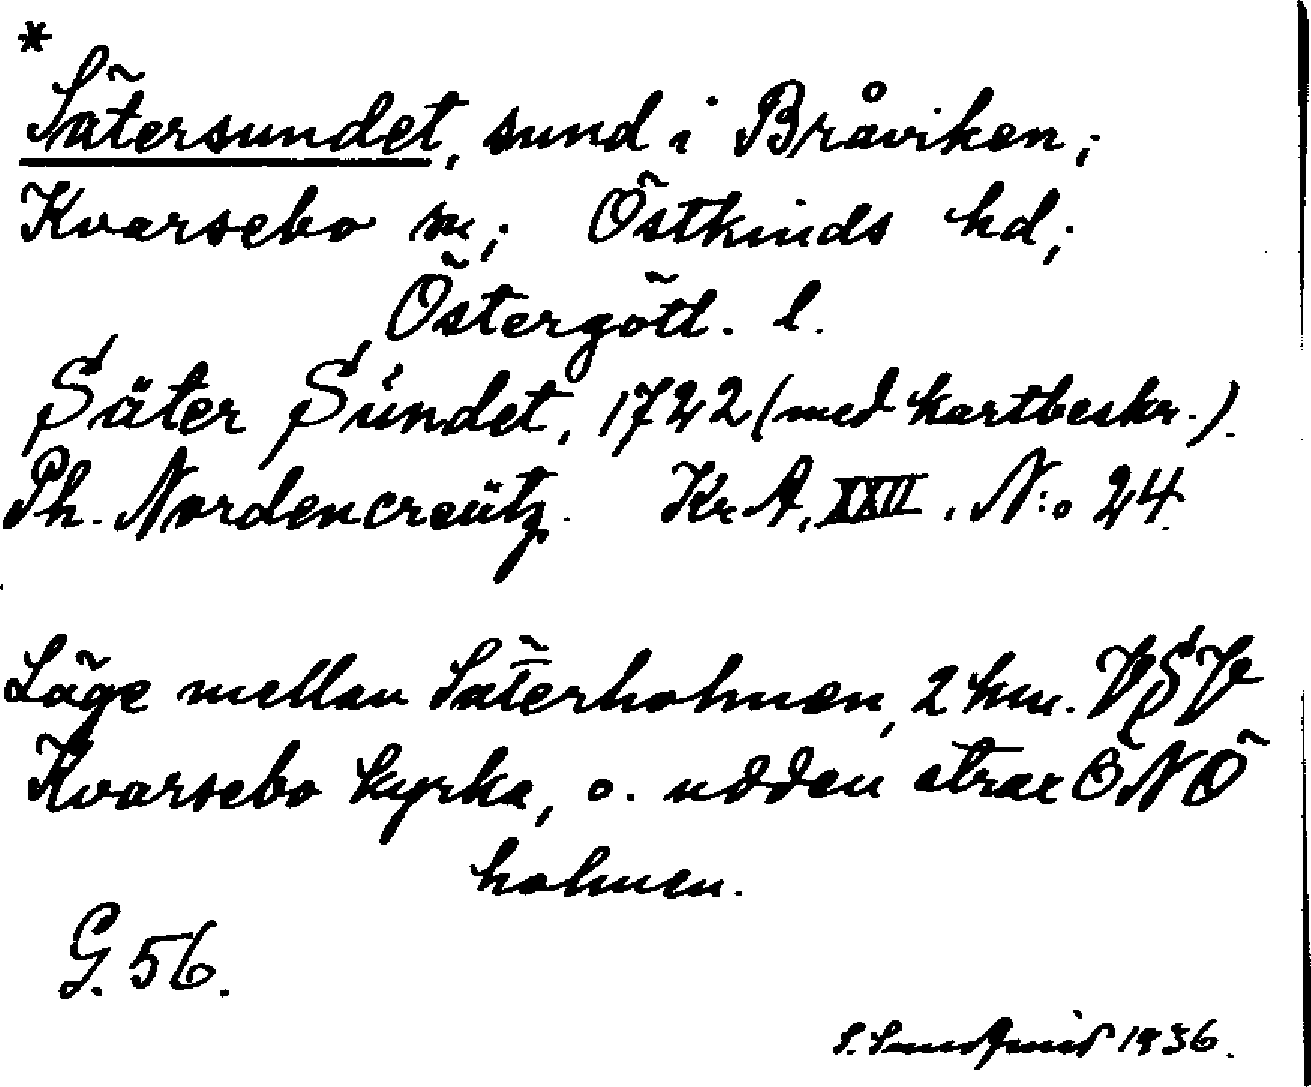 *
Sätersundet, sund i Bråviken;
Kvarsebo sn; Östkinds hd;
Östergötl. l.
Säter Sündet, 1722 (med kartbeskr.).
Ph. Nordencreütz. Kr. A. XXII. N:o 24.
Läge mellan Säterholmen, 2 km. VSV
Kvarsebo kyrka, o. udden strax ÖNÖ
holmen.
G. 56.
S. Sundqvist 1936.